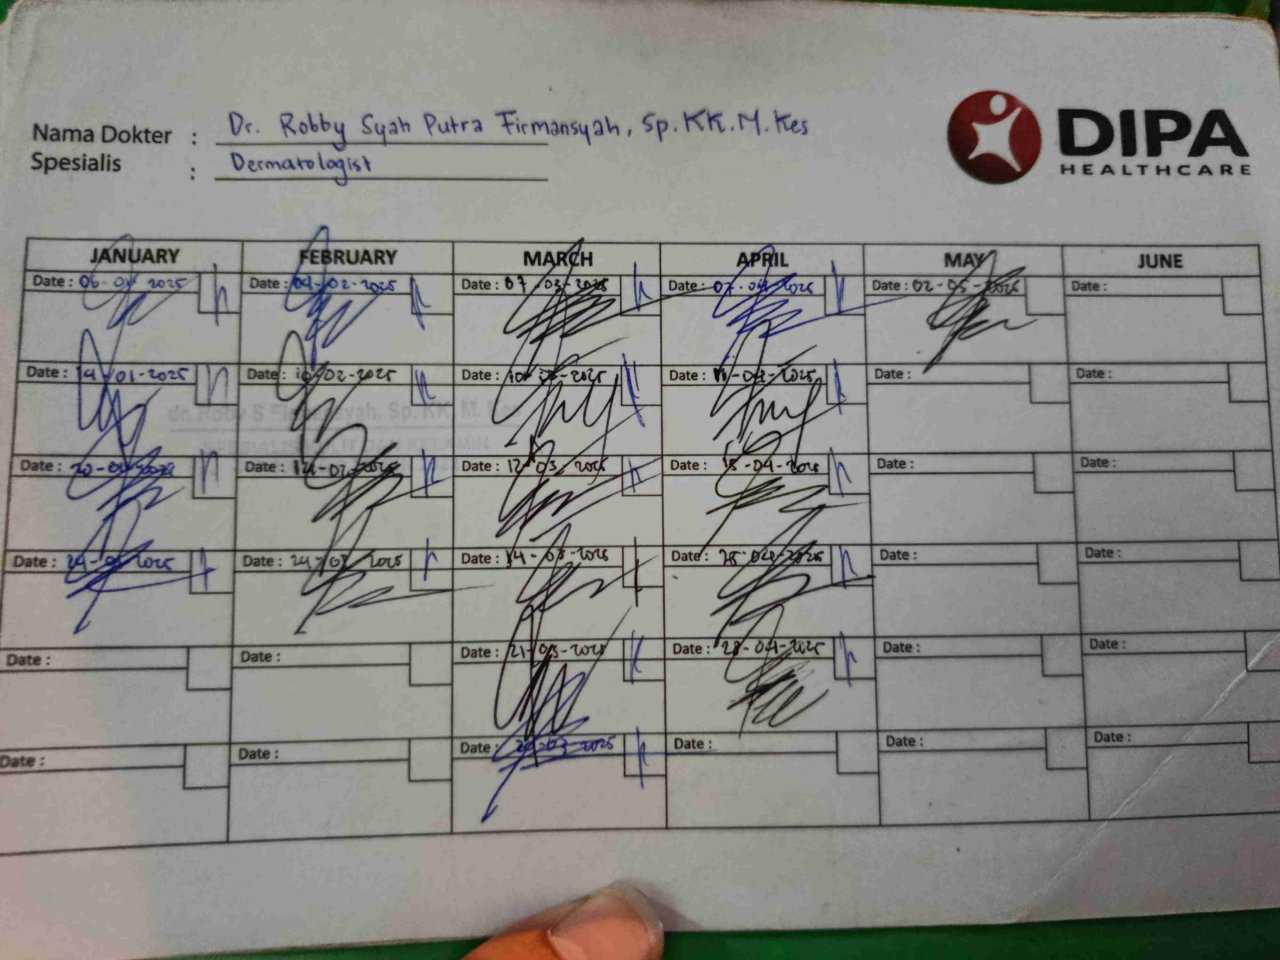 Nama Dokter : Dr. Robby Syah Putra Firmansyah, Sp.KK.M.Kes
Spesialis : Dermatologist
DIPA
HEALTHCARE
JANUARY FEBRUARY MARCH APRIL MAY JUNE
Date : 06-01-2025 Date : 04-02-2025 Date : 07-03-2025 Date : 07-04-2025 Date : 02-05-2025 Date :
Date : 14-01-2025 Date : 10-02-2025 Date : 10-03-2025 Date : 11-04-2025 Date : Date :
Date : 20-01-2025 Date : 14-02-2025 Date : 12-03-2025 Date : 15-04-2025 Date : Date :
Date : 24-01-2025 Date : 24-02-2025 Date : 14-03-2025 Date : 25-04-2025 Date : Date :
Date : Date : Date : 21-03-2025 Date : 28-04-2025 Date : Date :
Date : Date : Date : -03-2025 Date : Date : Date :